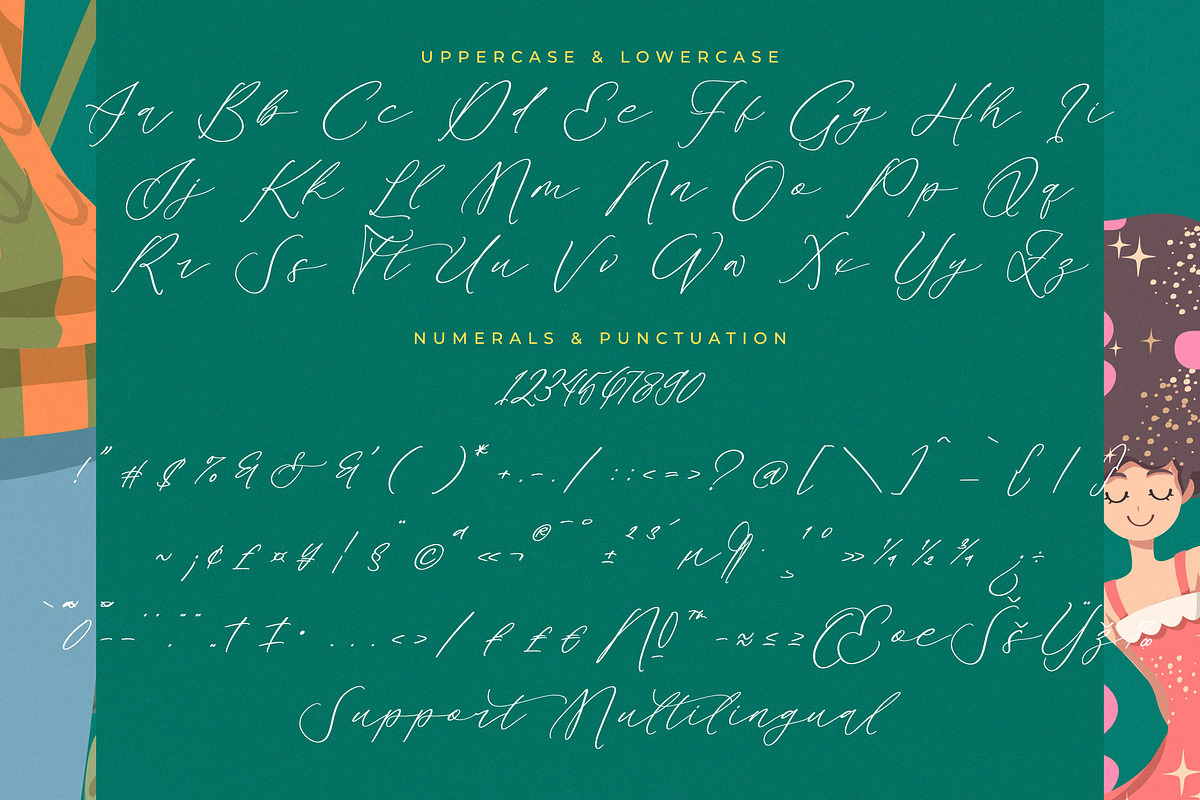 UPPERCASE & LOWERCASE
Aa Bb Cc Dd Ee Ff Gg Hh Ii
Jj Kk Ll Mm Nn Oo Pp Qq
Rr Ss Tt Uu Vv Ww Xx Yy Zz
NUMERALS & PUNCTUATION
1234567890
! " # $ % & & & ' ( ) * + , - . / : ; < = > ? @ [ \ ] ^ ` _ { | }
~ ¡ ¢ £ ¤ ¥ ¦ § ¨ © ª « ¬ ® ¯ ° ± ² ³ ´ µ ¶ · ¸ ¹ º » ¼ ½ ¾ ¿ ÷
† ‡ • ... < > / ƒ £ € № ™ − ≈ ≤ ≥ Œ œ Š š Ÿ ž
Support Multilingual